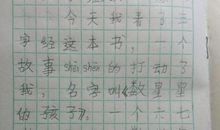 今天我看了三
字经这本书，一个
故事shēi shēi的打动了
我，名字叫《数星星
的孩子》。一个六七